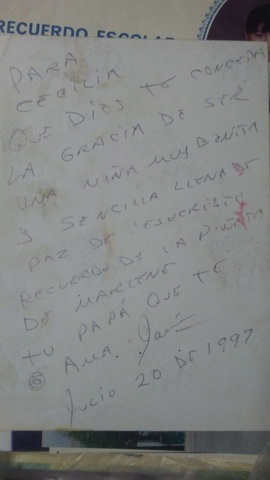 RECUERDO ESCOLAR
PARA
CECILIA
QUE DIOS TE CONCEDA
LA GRACIA DE SER
UNA NIÑA MUY BONITA
Y SENCILLA LLENA DE
PAZ DE JESUCRISTO
RECUERDO DE LA PIÑATA
DE MARLENE
TU PAPÁ QUE TE
AMA. José
Julio 20 DE 1997